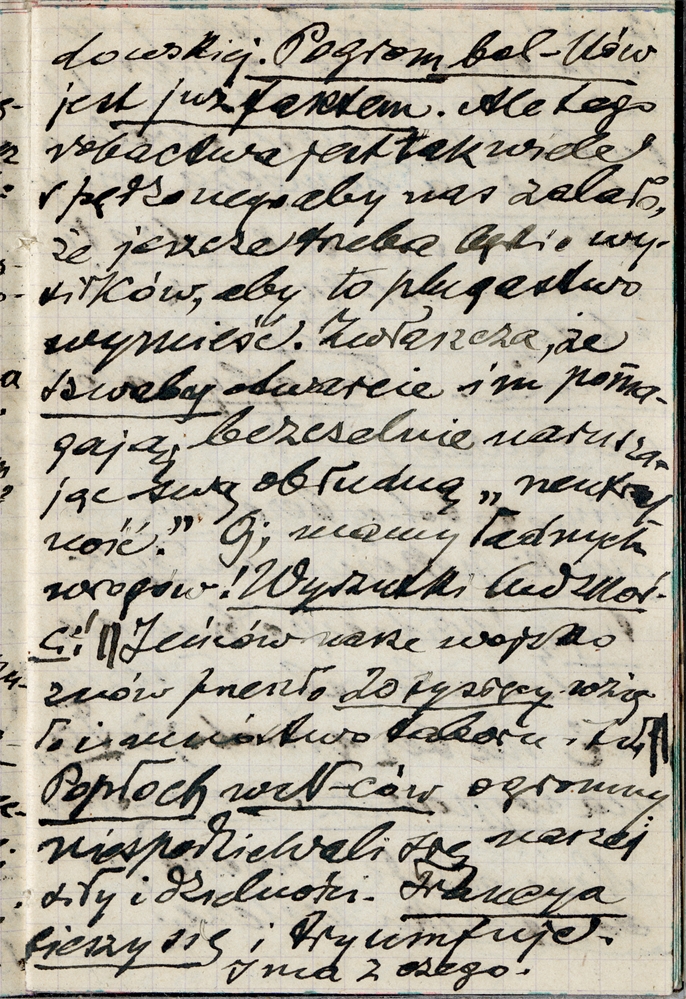 dowskiej. Pogrom bol-ków
jest już faktem. Ale tego
robactwa jest tak wiele
spędzonego aby nas zalało,
że jeszcze trzeba będzie wy-
siłków, aby to plugastwo
wymieść. Zwłaszcza, że
szwaby otwarcie im poma-
gają, bezczelnie narusza-
jąc swą obłudną „neutral
ność." Oj, mamy ładnych
wrogów! Wyrzutki ludzkoś-
ci! || Jeńców nasze wojsko
znów przeszło 20 tysięcy wzię
ło i mnóstwo taboru i t.d. ||
Popłoch w N-ców ogromny
niespodziewali się naszej
siły i dzielności. Francya
cieszy się i tryumfuje.
I ma z czego.